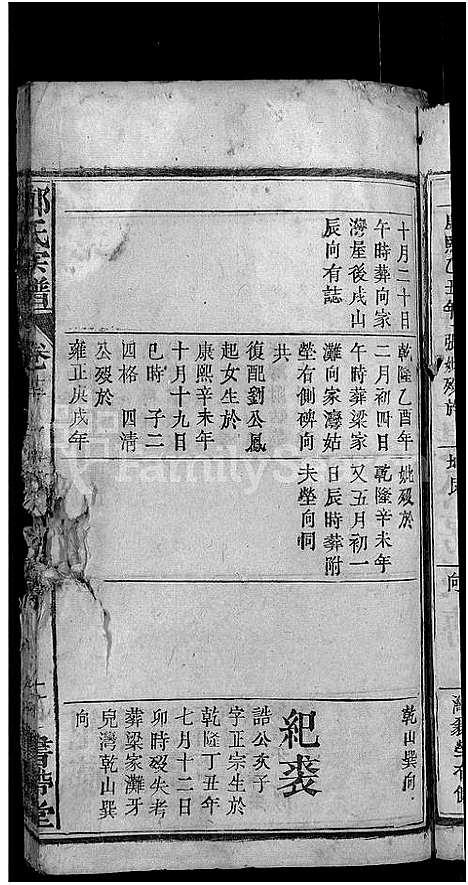 十月二十日
午時葬向家
灣屋後戌山
辰向有誌
乾隆乙酉年
二月初四日
午時葬梁家
灘向家灣姑
塋右側碑向
共
復配劉公鳳
起女生於
康熙辛未年
十月十九日
巳時 子二
四格 四清
公歿於
雍正庚戌年
妣歿於
乾隆辛未年
又五月初一
日辰時葬附
夫塋向同
乾山巽向
紀裘
誥公亥子
字正宗生於
乾隆丁丑年
七月十二日
卯時歿失考
葬梁家灘牙
兒灣乾山巽
向
氏宗譜
卷
FamilyS